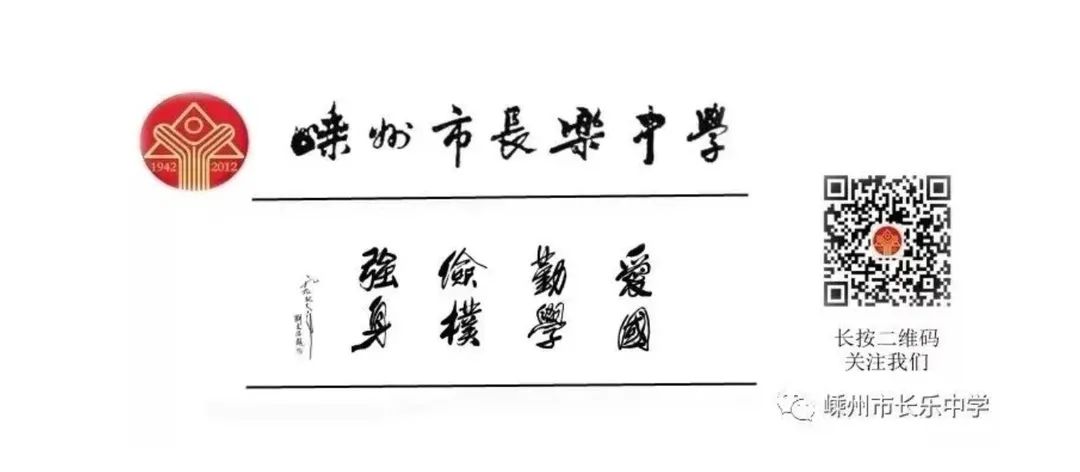 嵊州市長樂中學
1942 2012
愛國
勤學
儉樸
強身
长按二维码
关注我们
嵊州市长乐中学